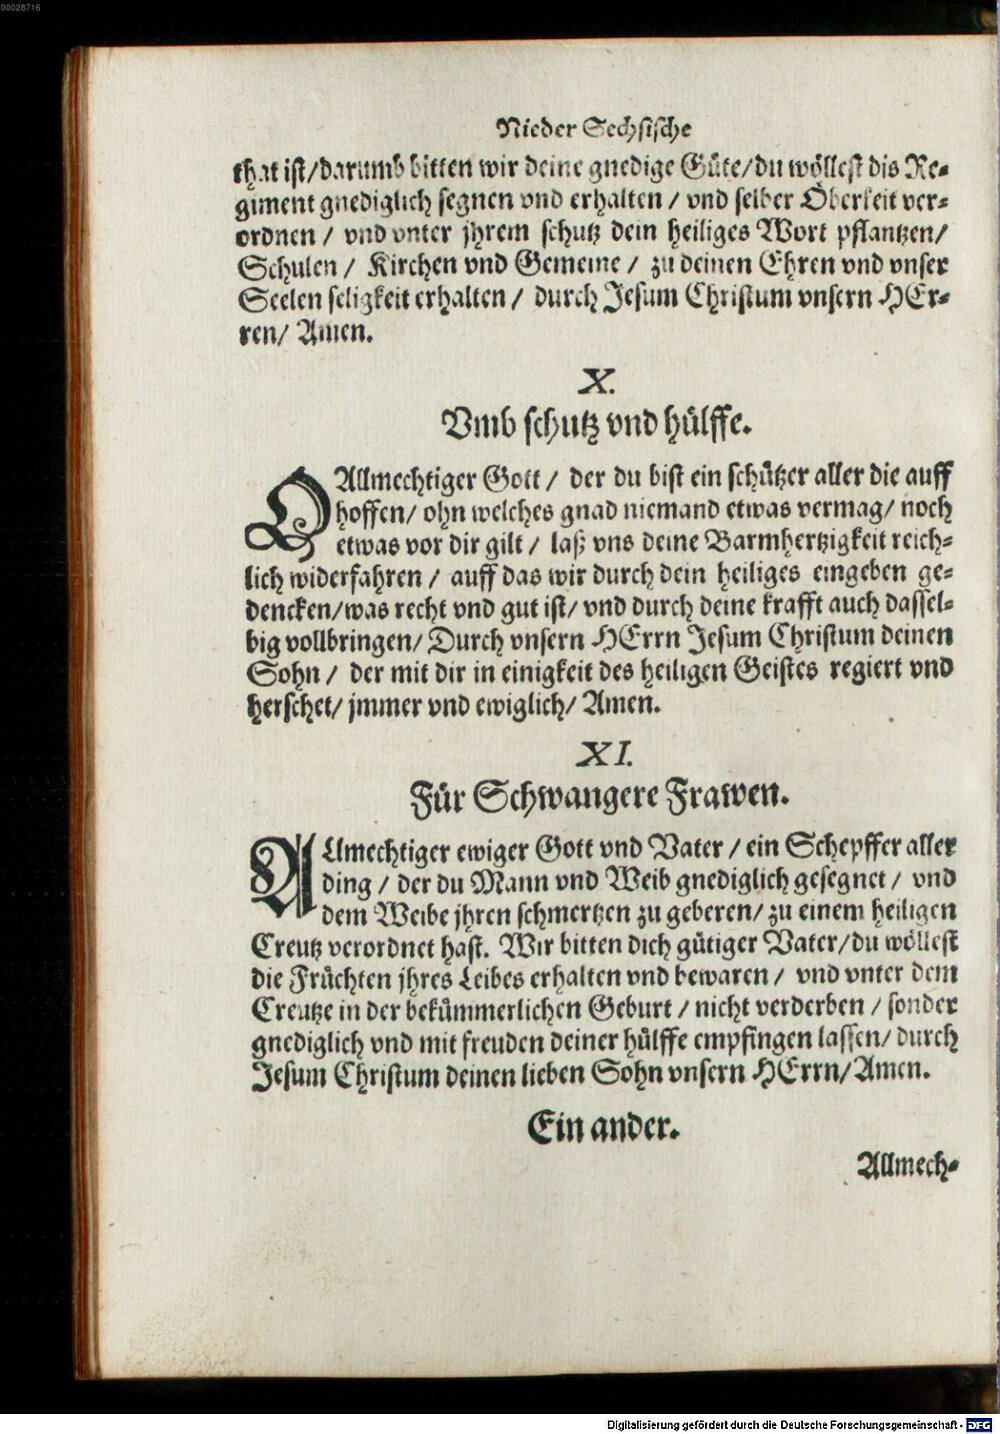 00028716
Nieder Sechsische
that ist/darumb bitten wir deine gnedige Güte/du wöllest dis Re-
giment gnediglich segnen vnd erhalten / vnd selber Oberkeit ver-
ordnen / vnd vnter jhrem schutz dein heiliges Wort pflantzen/
Schulen / Kirchen vnd Gemeine / zu deinen Ehren vnd vnser
Seelen seligkeit erhalten / durch Jesum Christum vnsern HEr-
ren/ Amen.
X.
Vmb schutz vnd hülffe.
O Allmechtiger Gott / der du bist ein schützer aller die auff
hoffen/ ohn welches gnad niemand etwas vermag/ noch
etwas vor dir gilt / laß vns deine Barmhertzigkeit reich-
lich widerfahren / auff das wir durch dein heiliges eingeben ge-
dencken/was recht vnd gut ist/ vnd durch deine krafft auch dassel-
big vollbringen/ Durch vnsern HErrn Jesum Christum deinen
Sohn / der mit dir in einigkeit des heiligen Geistes regiert vnd
herschet/ jmmer vnd ewiglich/ Amen.
XI.
Für Schwangere Frawen.
ALlmechtiger ewiger Gott vnd Vater / ein Schepffer aller
ding / der du Mann vnd Weib gnediglich gesegnet / vnd
dem Weibe jhren schmertzen zu geberen/ zu einem heiligen
Creutz verordnet hast. Wir bitten dich gütiger Vater/du wöllest
die Früchten jhres Leibes erhalten vnd bewaren / vnd vnter dem
Creutze in der bekümmerlichen Geburt / nicht verderben / sonder
gnediglich vnd mit freuden deiner hülffe empfingen lassen/ durch
Jesum Christum deinen lieben Sohn vnsern HErrn/ Amen.
Ein ander.
Allmech-
Digitalisierung gefördert durch die Deutsche Forschungsgemeinschaft - DFG